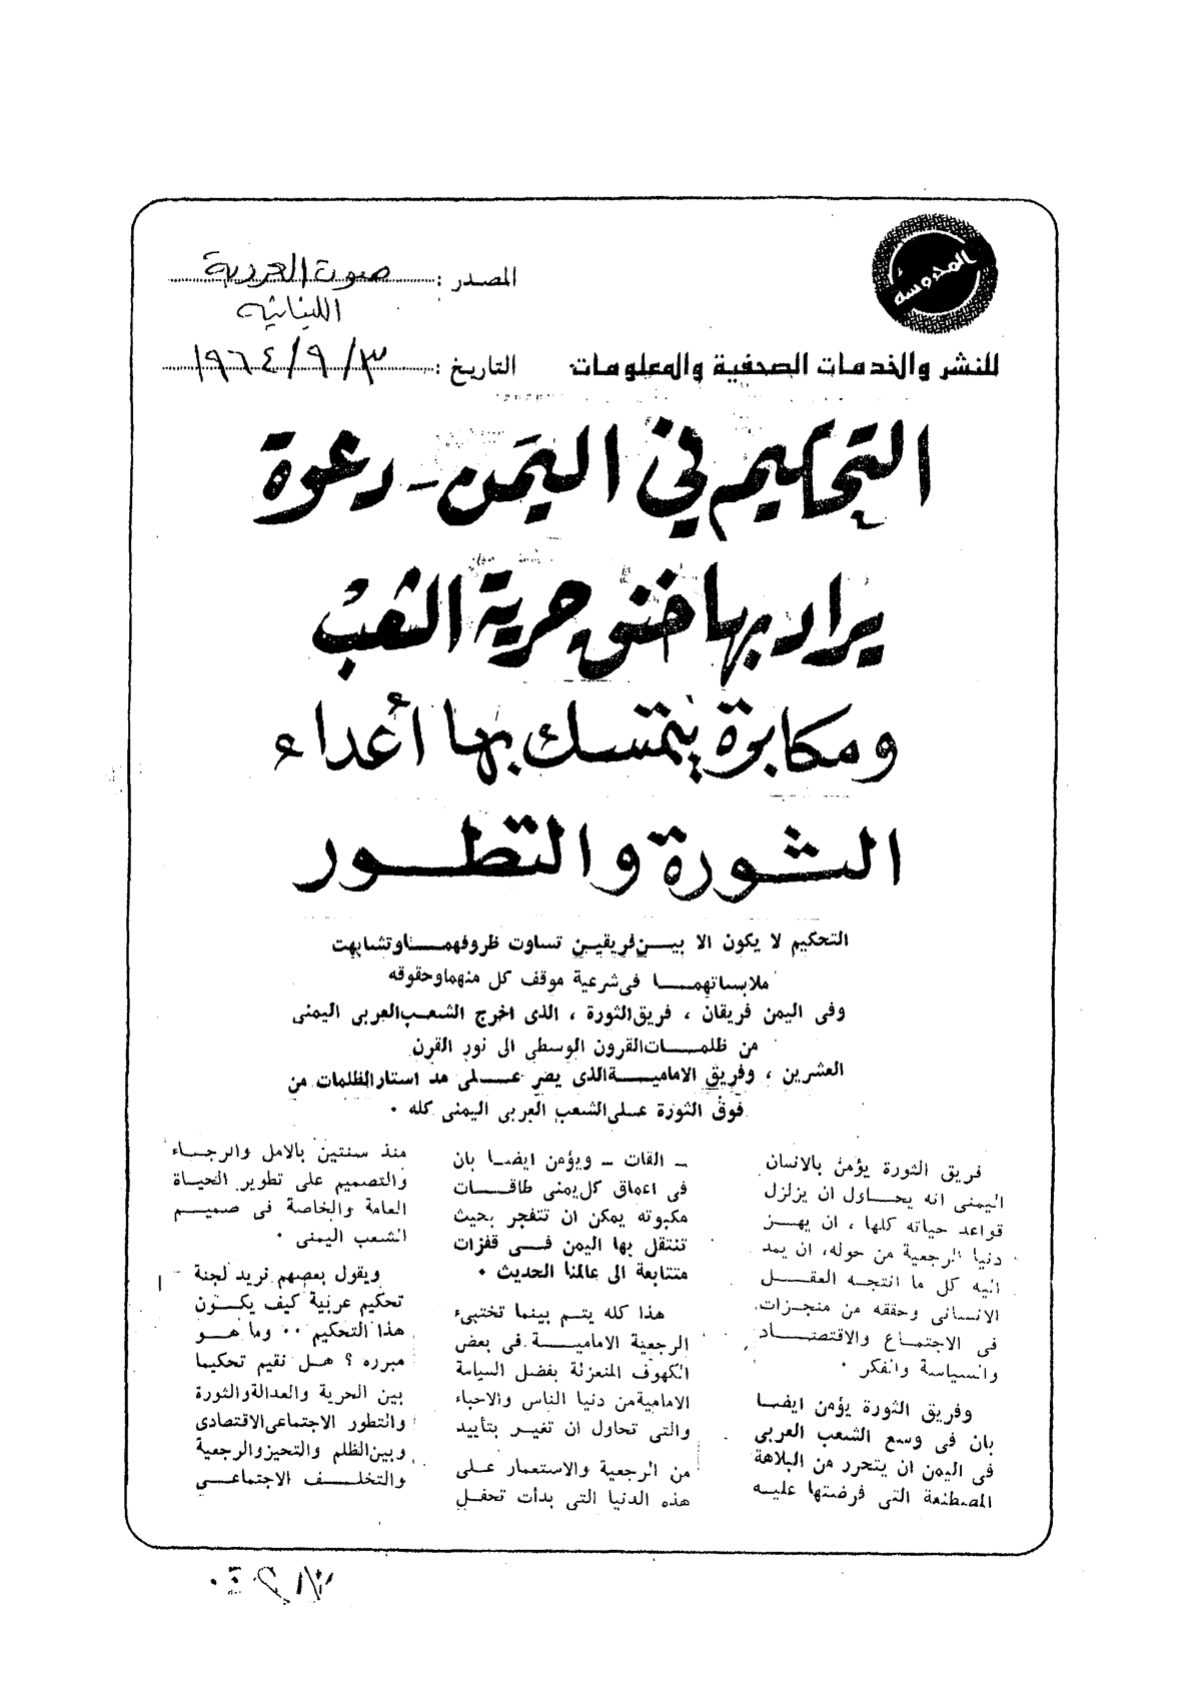 المحروسة
المصدر : صوت العروبة
اللبنانية
للنشر والخدمات الصحفية والمعلومات
التاريخ : ٣ / ٩ / ١٩٦٤
التحكيم في اليمن - دعوة
يراد بها خنق حرية الشعب
ومكابرة يتمسك بها أعداء
الثورة والتطور
التحكيم لا يكون الا بيــن فريقيـن تساوت ظروفهمــا وتشابهت
ملابساتهمــا فى شرعية موقف كل منهما وحقوقه
وفى اليمن فريقان ، فريق الثورة ، الذى اخرج الشعب العربى اليمنى
من ظلمــات القرون الوسطى الى نور القرن
العشرين ، وفريق الاماميــة الذى يصر علــى مد استار الظلمات من
فوق الثورة على الشعب العربى اليمنى كله .
فريق الثورة يؤمن بالانسان
اليمنى انه يحــاول ان يزلزل
قواعد حياته كلها ، ان يهــز
دنيا الرجعية من حوله، ان يمد
اليه كل ما انتجه العقــل
الانسانى وحققه من منجزات
فى الاجتماع والاقتصــاد
والسياسة والفكر .
وفريق الثورة يؤمن ايضــا
بان فى وسع الشعب العربى
فى اليمن ان يتحرر من البلاهة
المصطنعة التى فرضتها عليه
ــ القات ــ ويؤمن ايضــا بان
فى اعماق كل يمنى طاقــات
مكبوته يمكن ان تتفجر بحيث
تنتقل بها اليمن فــى قفزات
متتابعة الى عالمنا الحديث .
هذا كله يتــم بينما تختبىء
الرجعية الاماميــة فى بعض
الكهوف المنعزلة بفضل السياسة
الامامية من دنيا الناس والاحياء
والتى تحاول ان تغيــر بتأييد
من الرجعية والاستعمار علــى
هذه الدنيا التى بدأت تحفل
منذ سنتين بالامل والرجــاء
والتصميم على تطوير الحياة
العامة والخاصة فى صميــم
الشعب اليمنى .
ويقول بعضهم نريد لجنة
تحكيم عربية كيف يكــون
هذا التحكيم .. وما هــو
مبرره ؟ هــل نقيم تحكيما
بين الحرية والعدالة والثورة
والتطور الاجتماعى الاقتصادى
وبين الظلم والتحيز والرجعية
والتخلــف الاجتماعــى